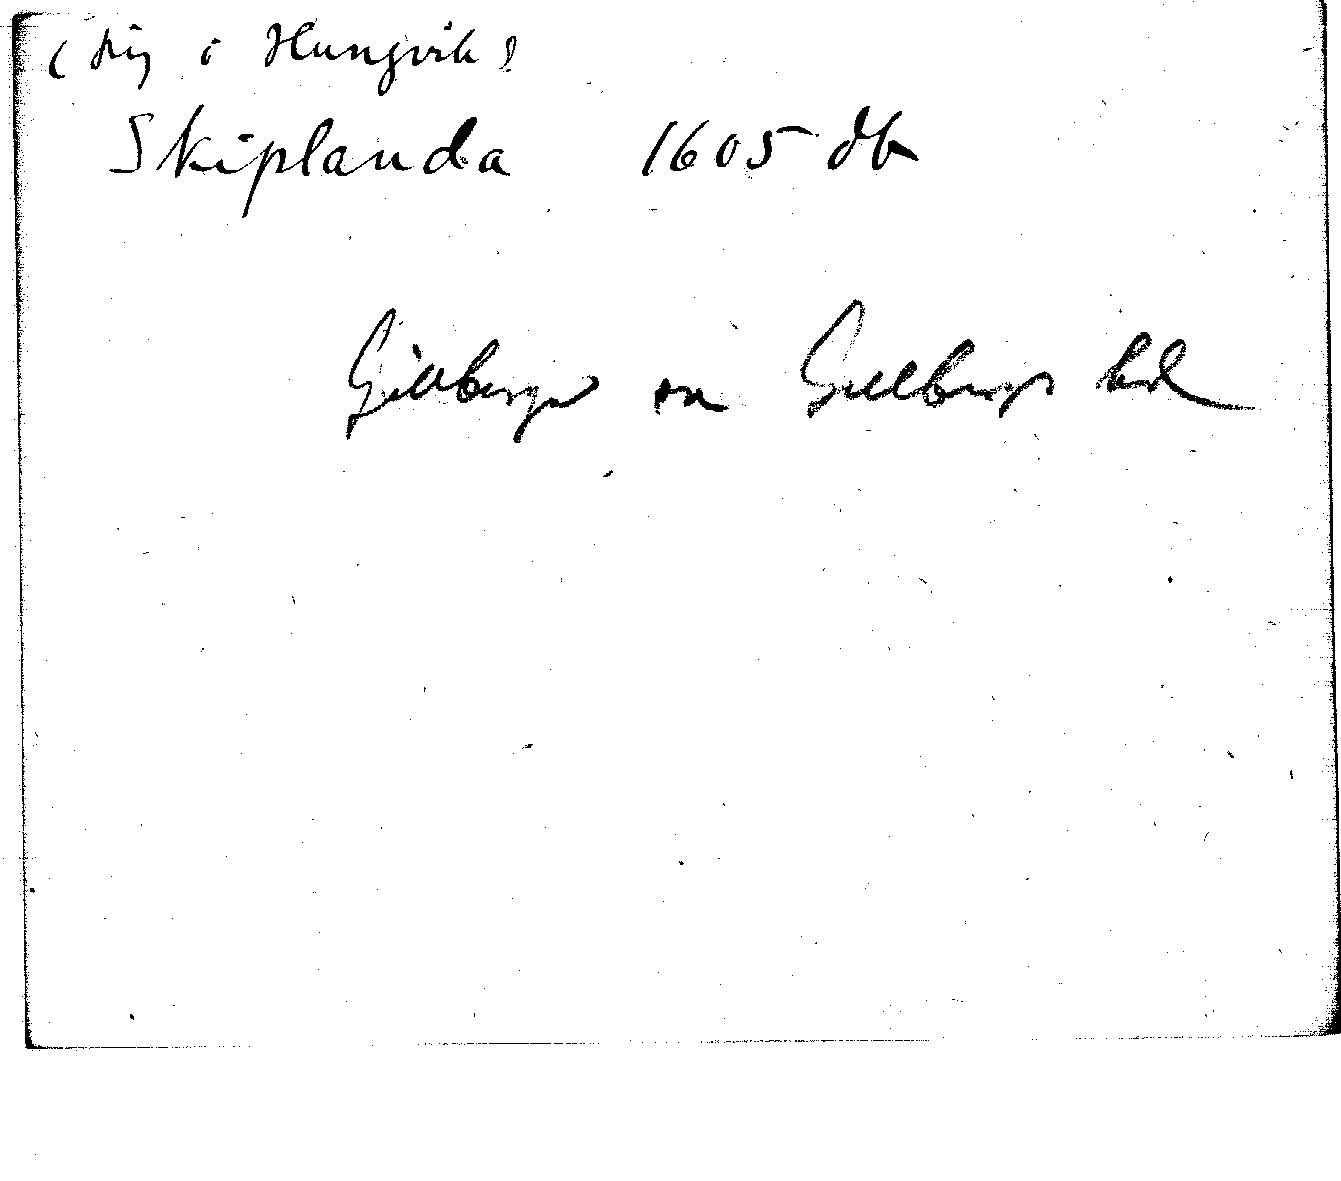 ( i Hungvik)
Skiplanda 1605 db
Gillbergs sn Gillbergs hd